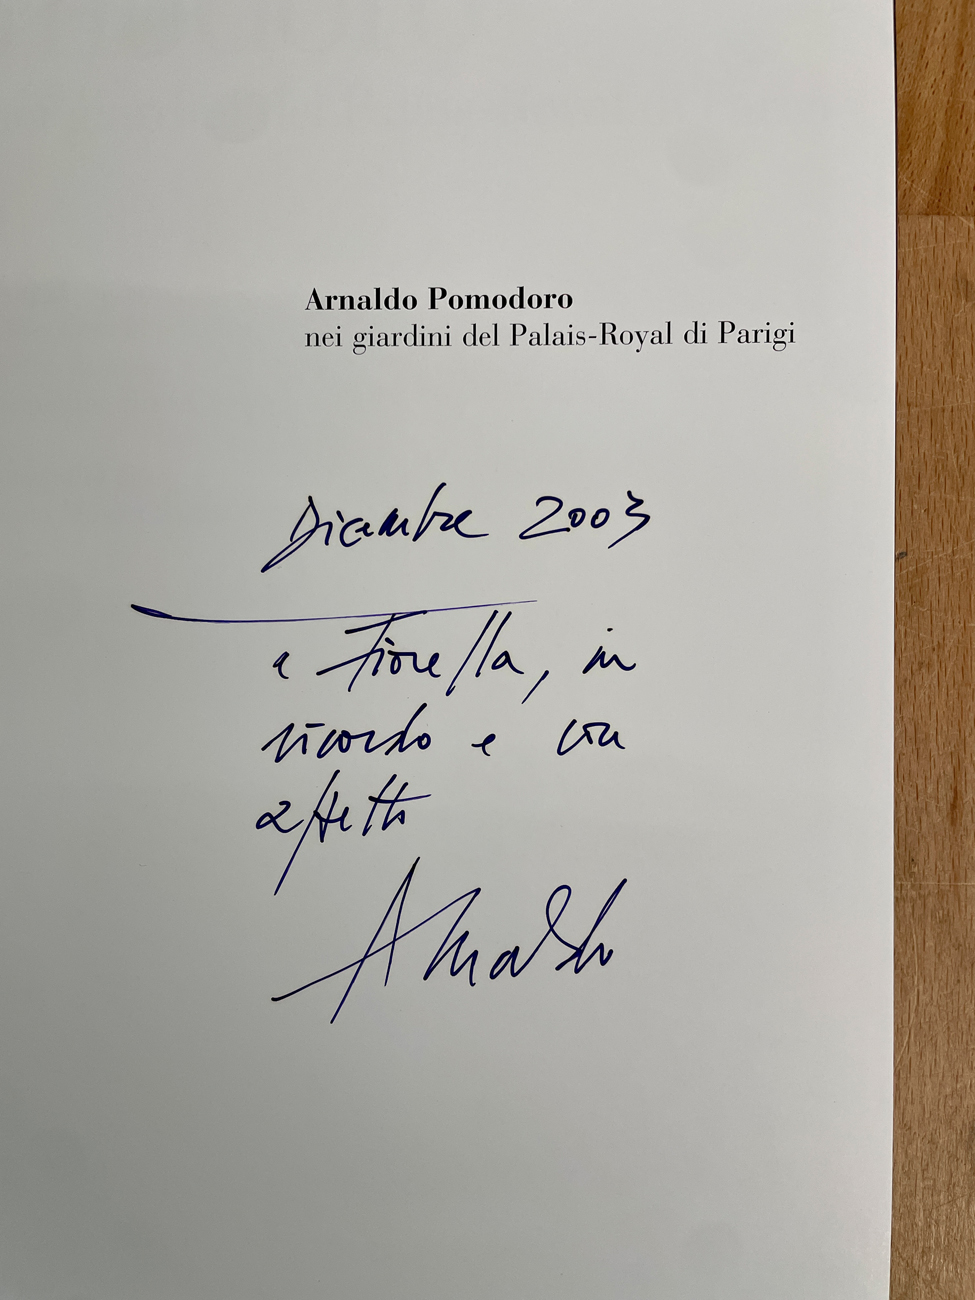 Arnaldo Pomodoro
nei giardini del Palais-Royal di Parigi
Dicembre 2003
a Fiorella, in
ricordo e con
affetto
Arnaldo